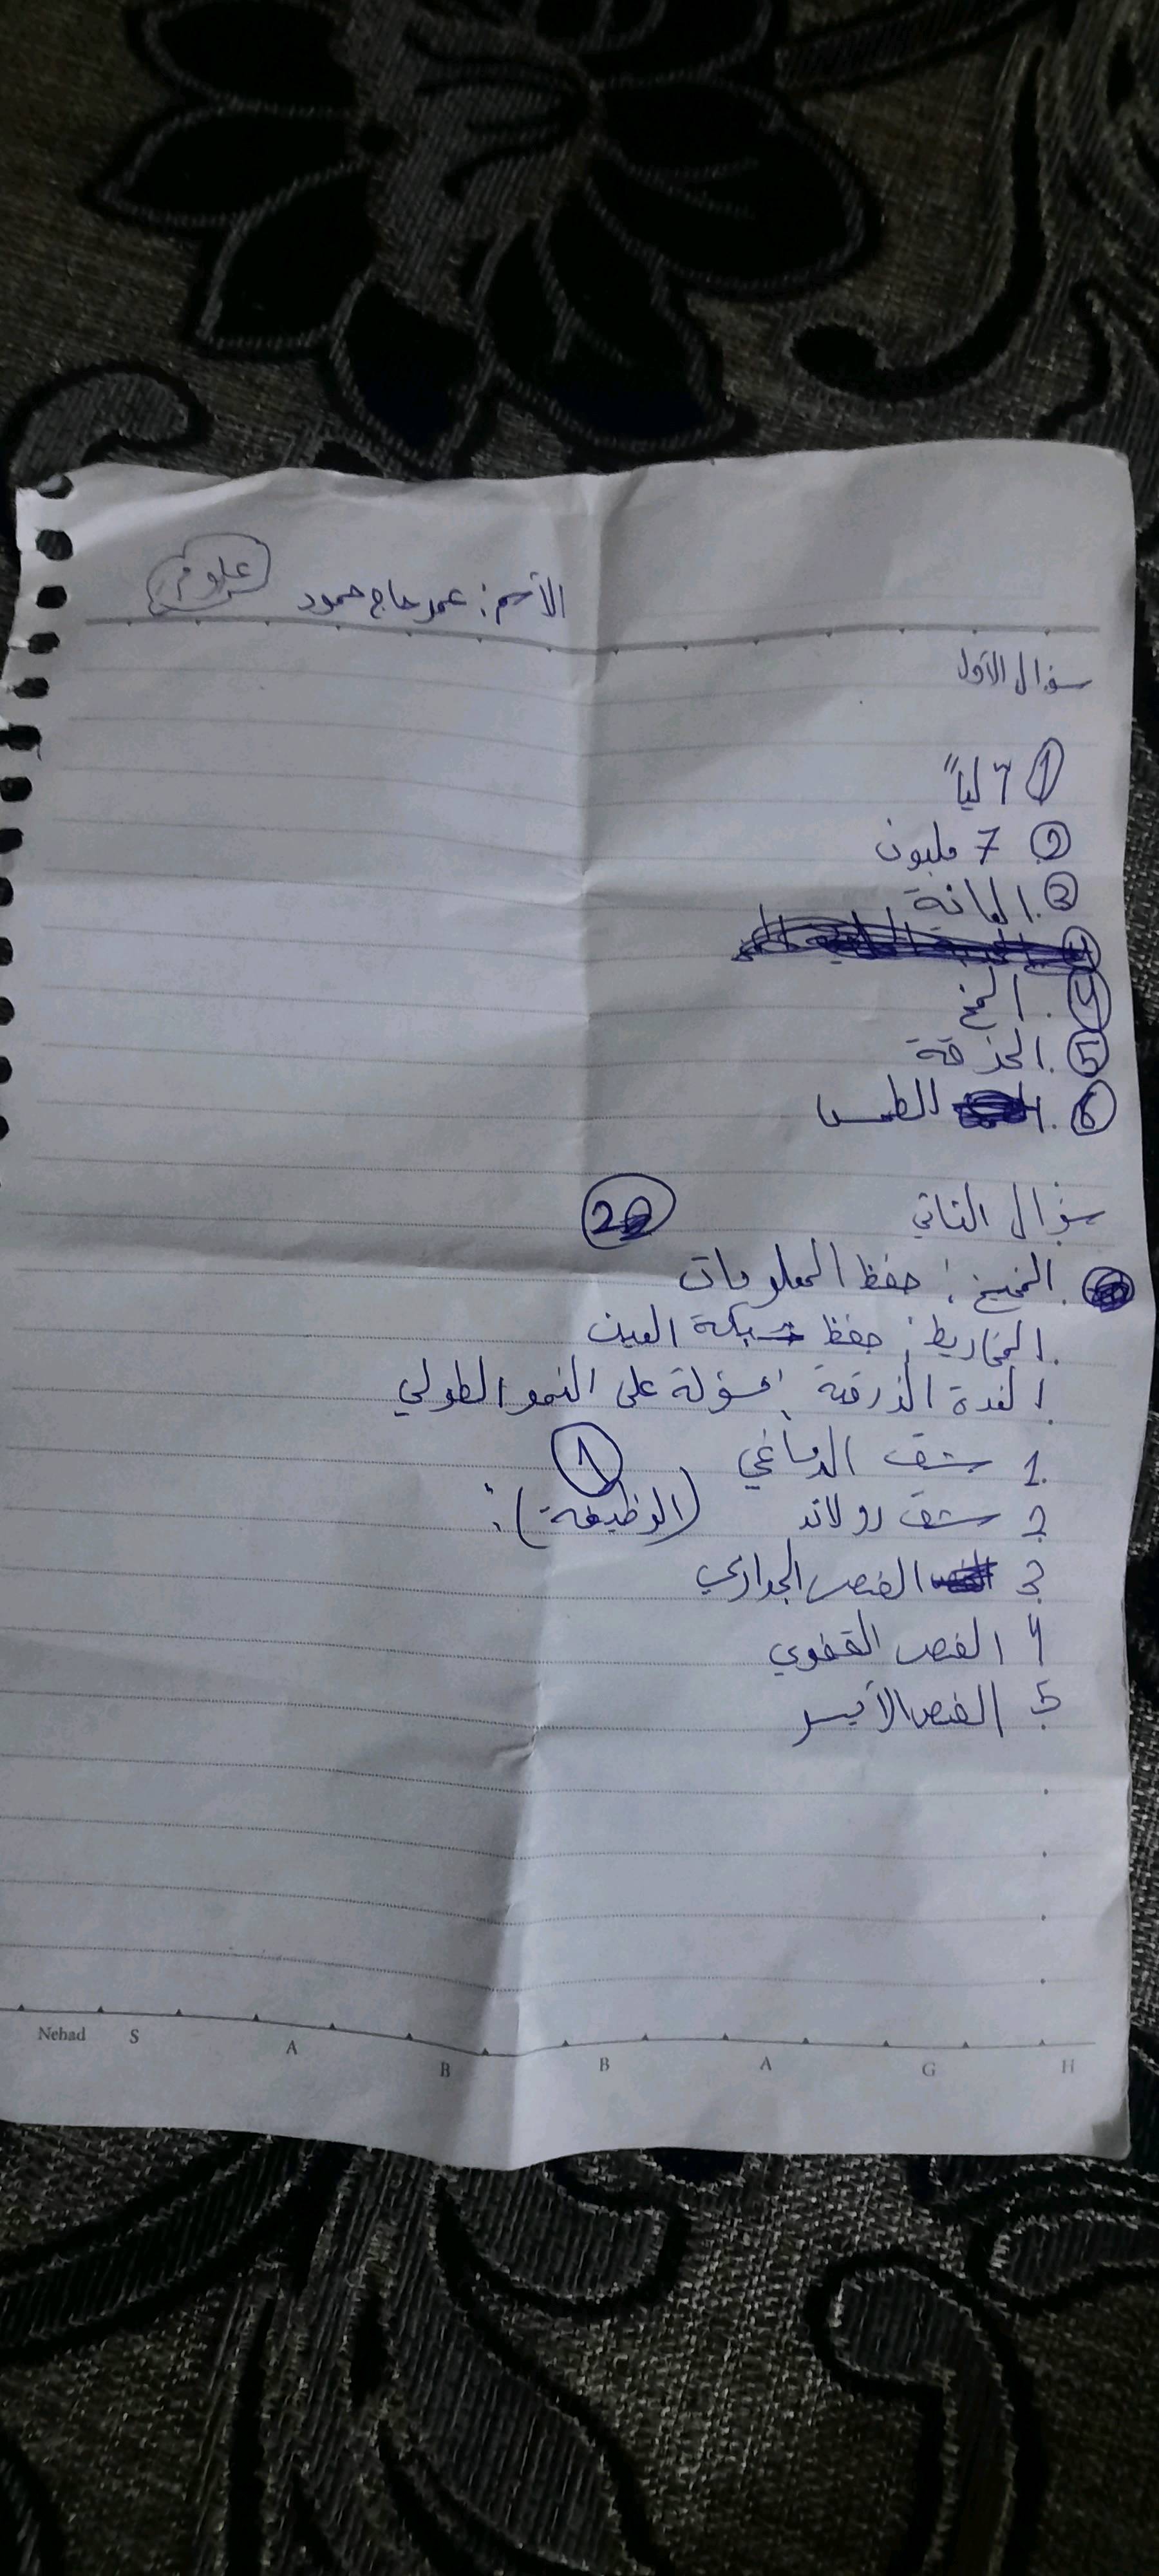 الأسم: عمر حاج حمود علوم
سؤال الأول
① 7 لياً
② 7 مليون
③ .المانة
④ . المخ
⑤ .الحذقة
⑥ . الطمس
سؤال الثاني 2
. المخيخ: حفظ المعلومات
. المخاريط: حفظ شبكة العين
. الغدة الذرقية: مسؤلة على النمو الطولي
1. شق الدماغي 1
2 شق رولاند (الوظيفة):
3 الفص الجداري
4 الفص القفوي
5 الفص الأيسر
Nehad S A B B A G H